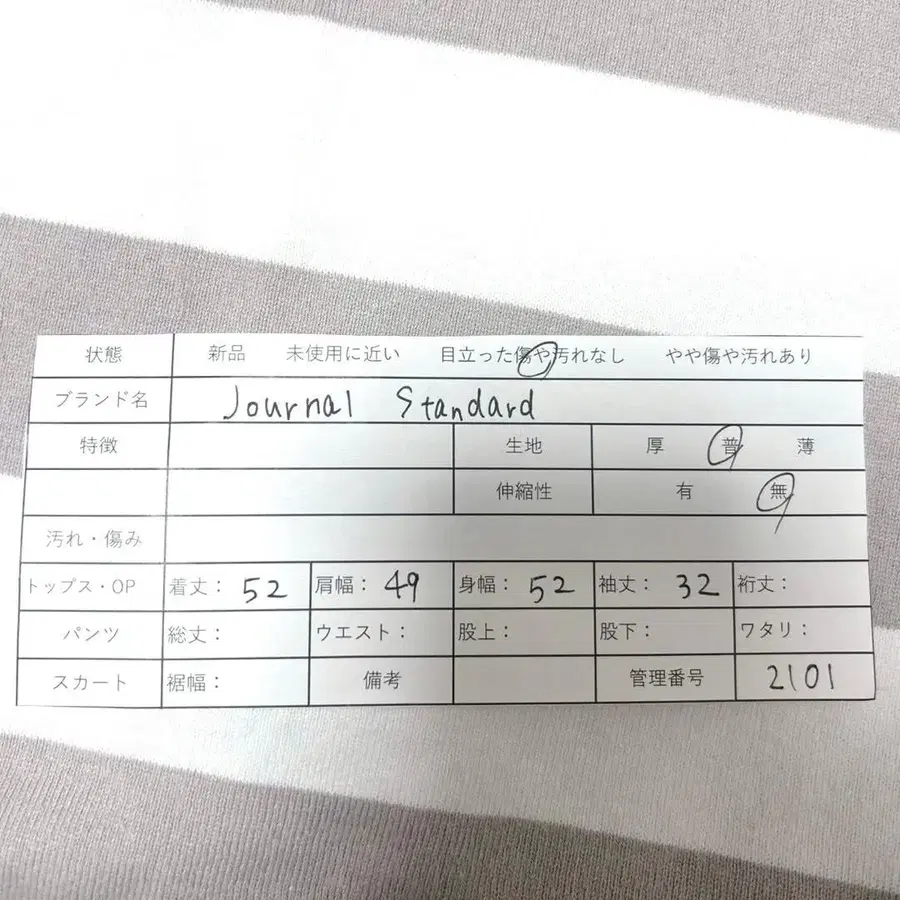 状態 新品 未使用に近い 目立った傷や汚れなし やや傷や汚れあり
ブランド名 Journal Standard
特徴 生地 厚 普 薄
伸縮性 有 無
汚れ・傷み
トップス・OP 着丈： 52 肩幅： 49 身幅： 52 袖丈： 32 裄丈：
パンツ 総丈： ウエスト： 股上： 股下： ワタリ：
スカート 裾幅： 備考 管理番号 2101